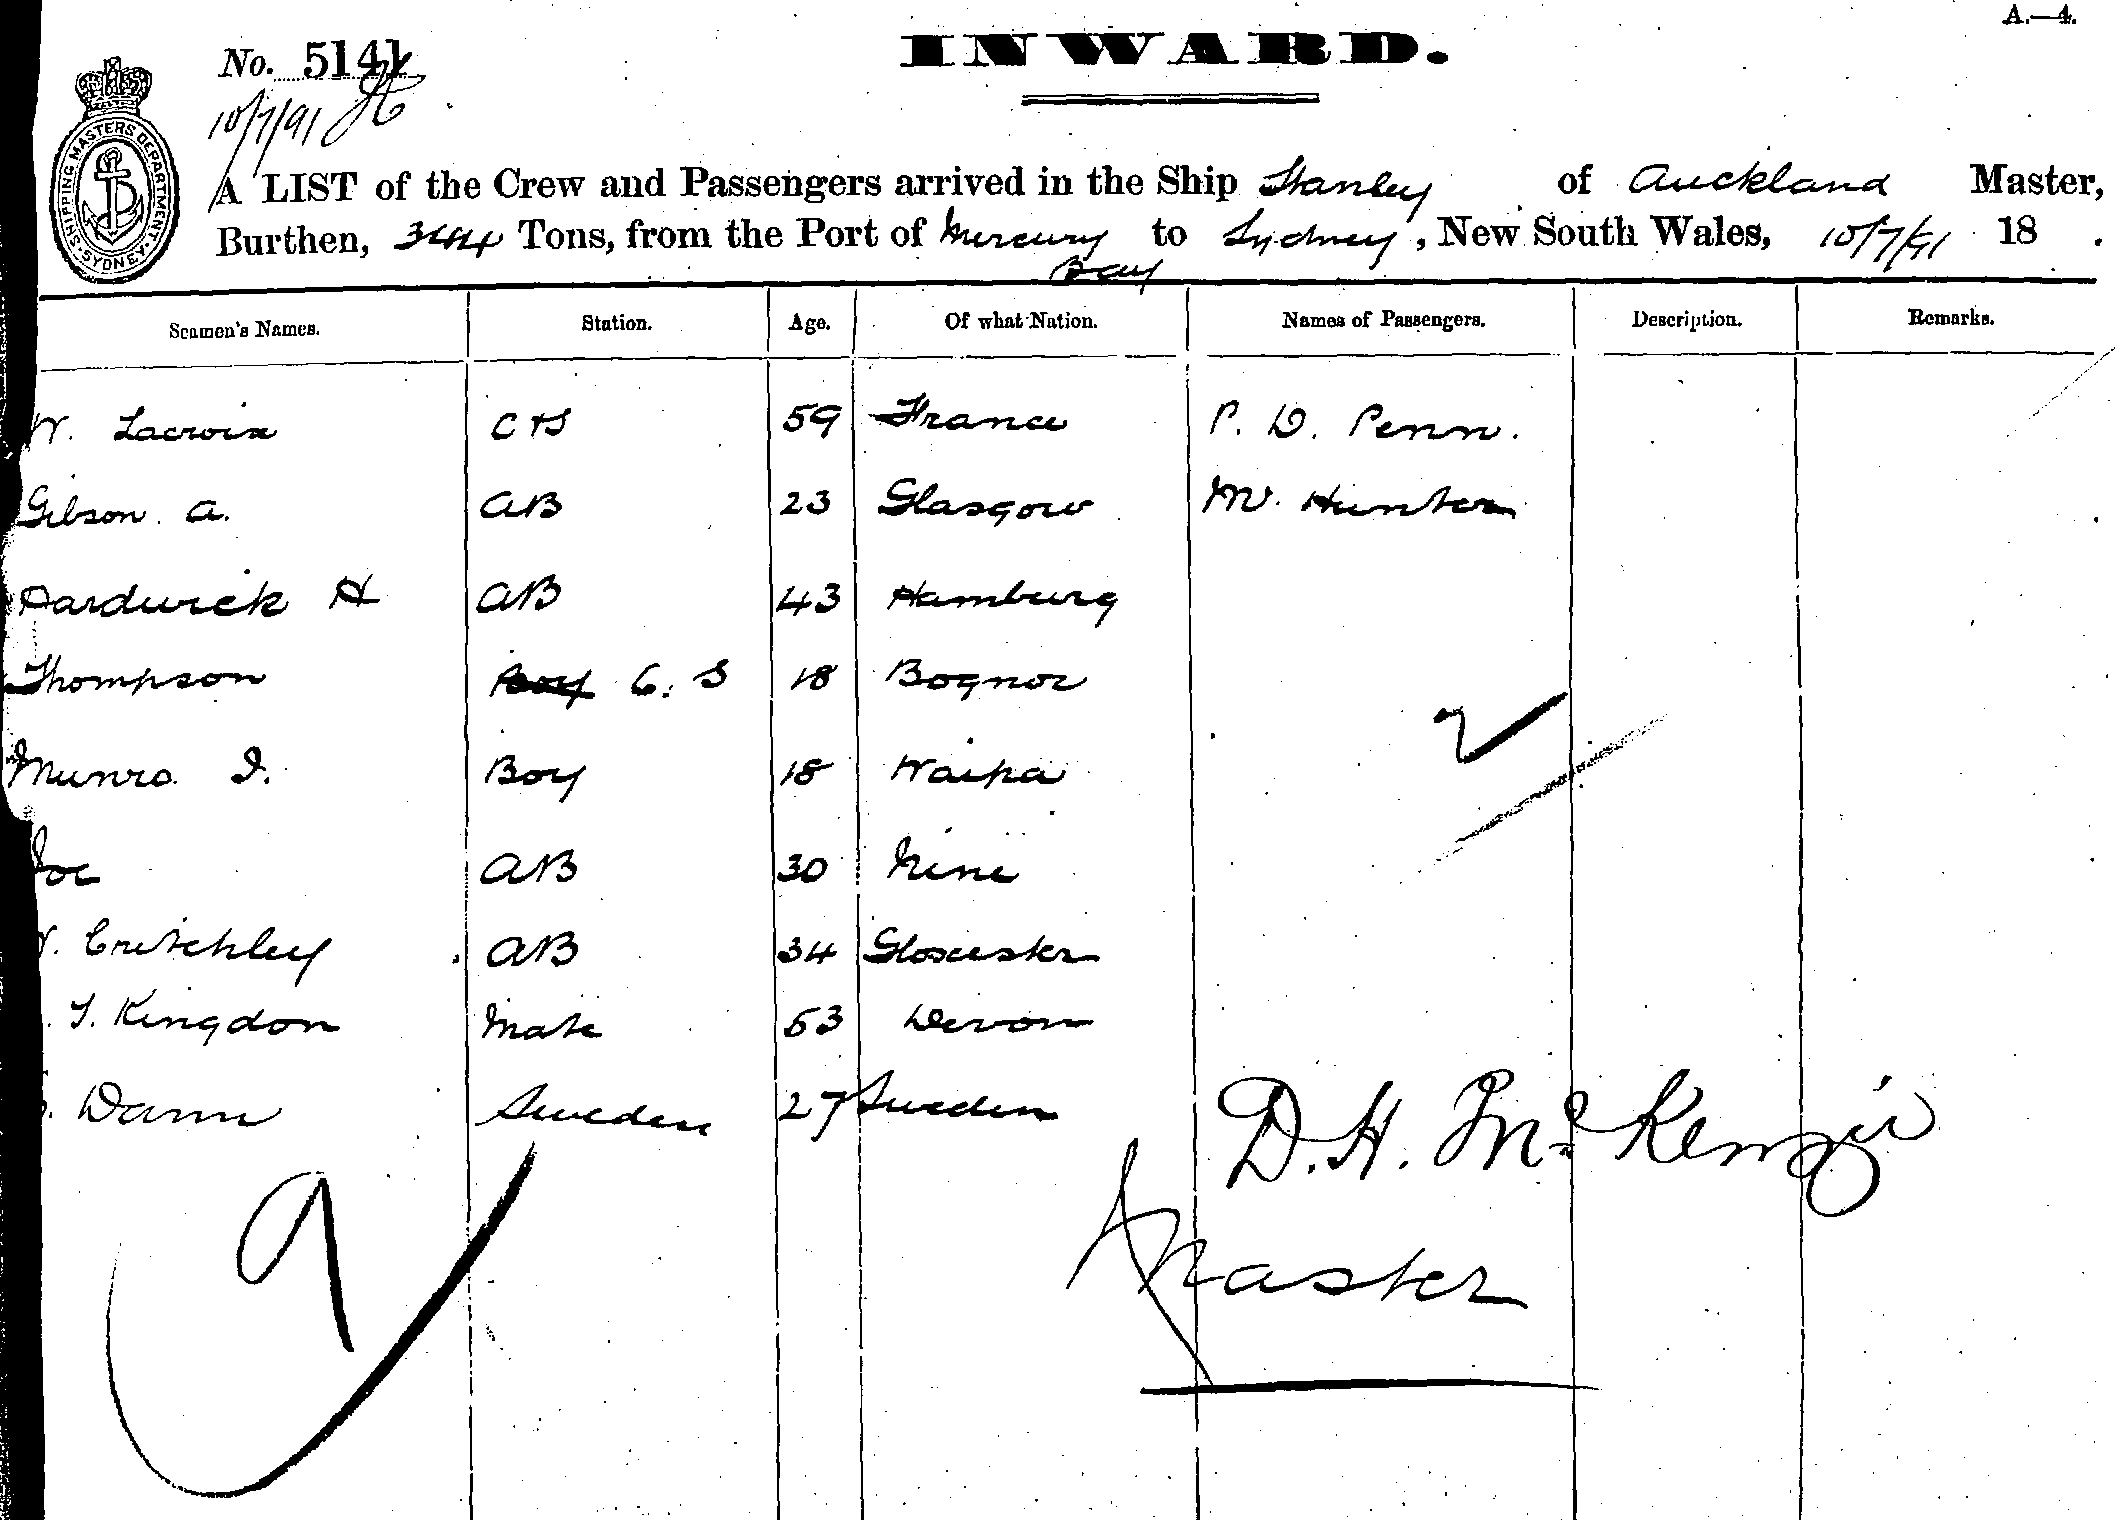 A.—4.
No. 5141
INWARD.
10/7/91
SHIPPING MASTERS DEPARTMENT SYDNEY
A LIST of the Crew and Passengers arrived in the Ship Stanley of Auckland Master,
Burthen, 344 Tons, from the Port of Mercury Bay to Sydney, New South Wales, 10/7/91 18 .
Seamen's Names. Station. Age. Of what Nation. Names of Passengers. Description. Remarks.
W. Lacroix C & S 59 France P. D. Penn.
Gibson. A. AB 23 Glasgow M. Hunter
Hardwick H AB 43 Hamburg
Thompson Boy O. S 18 Bognor
Munro J. Boy 18 Waipa
Joe AB 30 Nine
Critchley AB 34 Gloscester
T. Kingdon Mate 53 Devon
Dann Sweden 27 Sweden
D. H. McKenzie
Master
9